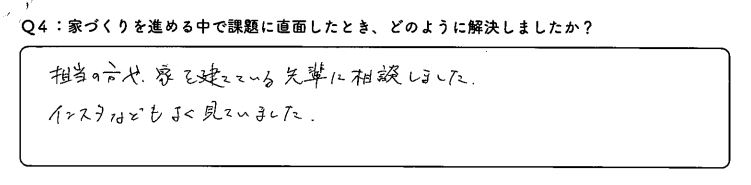 Q4：家づくりを進める中で課題に直面したとき、どのように解決しましたか？
担当の方や、家を建てている先輩に相談しました.
インスタなどもよく見ていました.